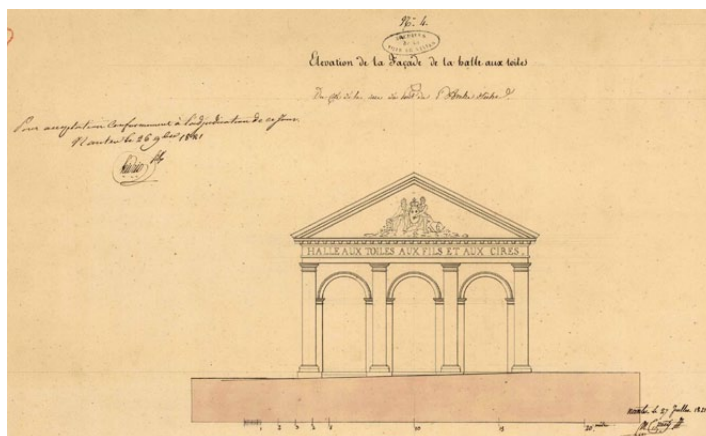 N.º 4.
ARCHIVES
DE LA
VILLE DE NANTES
Elevation de la Façade de la halle aux toiles
Du côté de la rue
Pour acceptation conformément à l'adjudication de ce jour.
Nantes le 26 9bre 1821
HALLE AUX TOILES AUX FILS ET AUX CIRES.
Nantes le 27 Juillet 1821
1 2 3 4 5 10 15 20